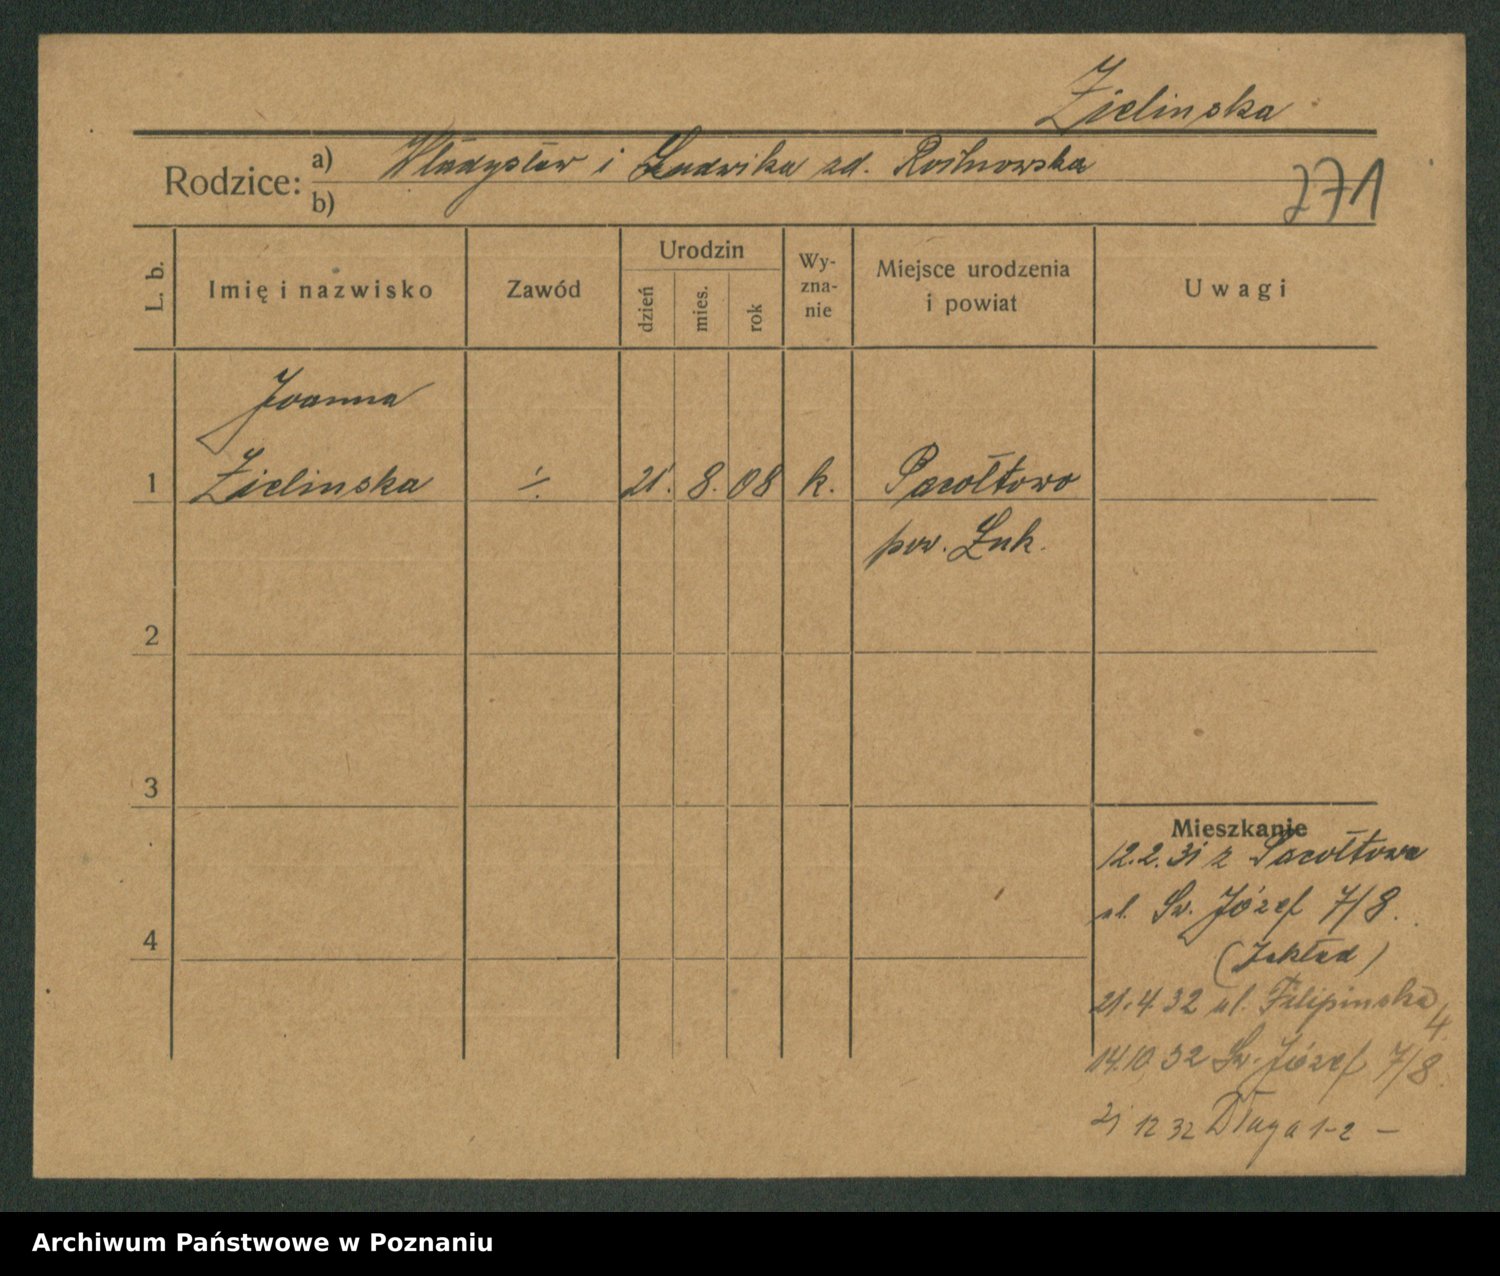 Zielinska
Rodzice:
a) Władysław i Ludwika zd. Rośinowska
b)
271
L. b.
Imię i nazwisko
Zawód
Urodzin
dzień
mies.
rok
Wy-
zna-
nie
Miejsce urodzenia
i powiat
Uwagi
Joanna
1 Zielinska ÷ 21. 8. 08 k. Pacołtowo
pow. Lub.
2
3
4
Mieszkanie
12.2.31 z Pacołtowa
ul. Św. Józef 7/8.
(Zakład)
21.4.32 ul. Filipinska 4.
14.10 32 Św. Józef 7/8.
21 12 32 Długa 1-2 -
Archiwum Państwowe w Poznaniu